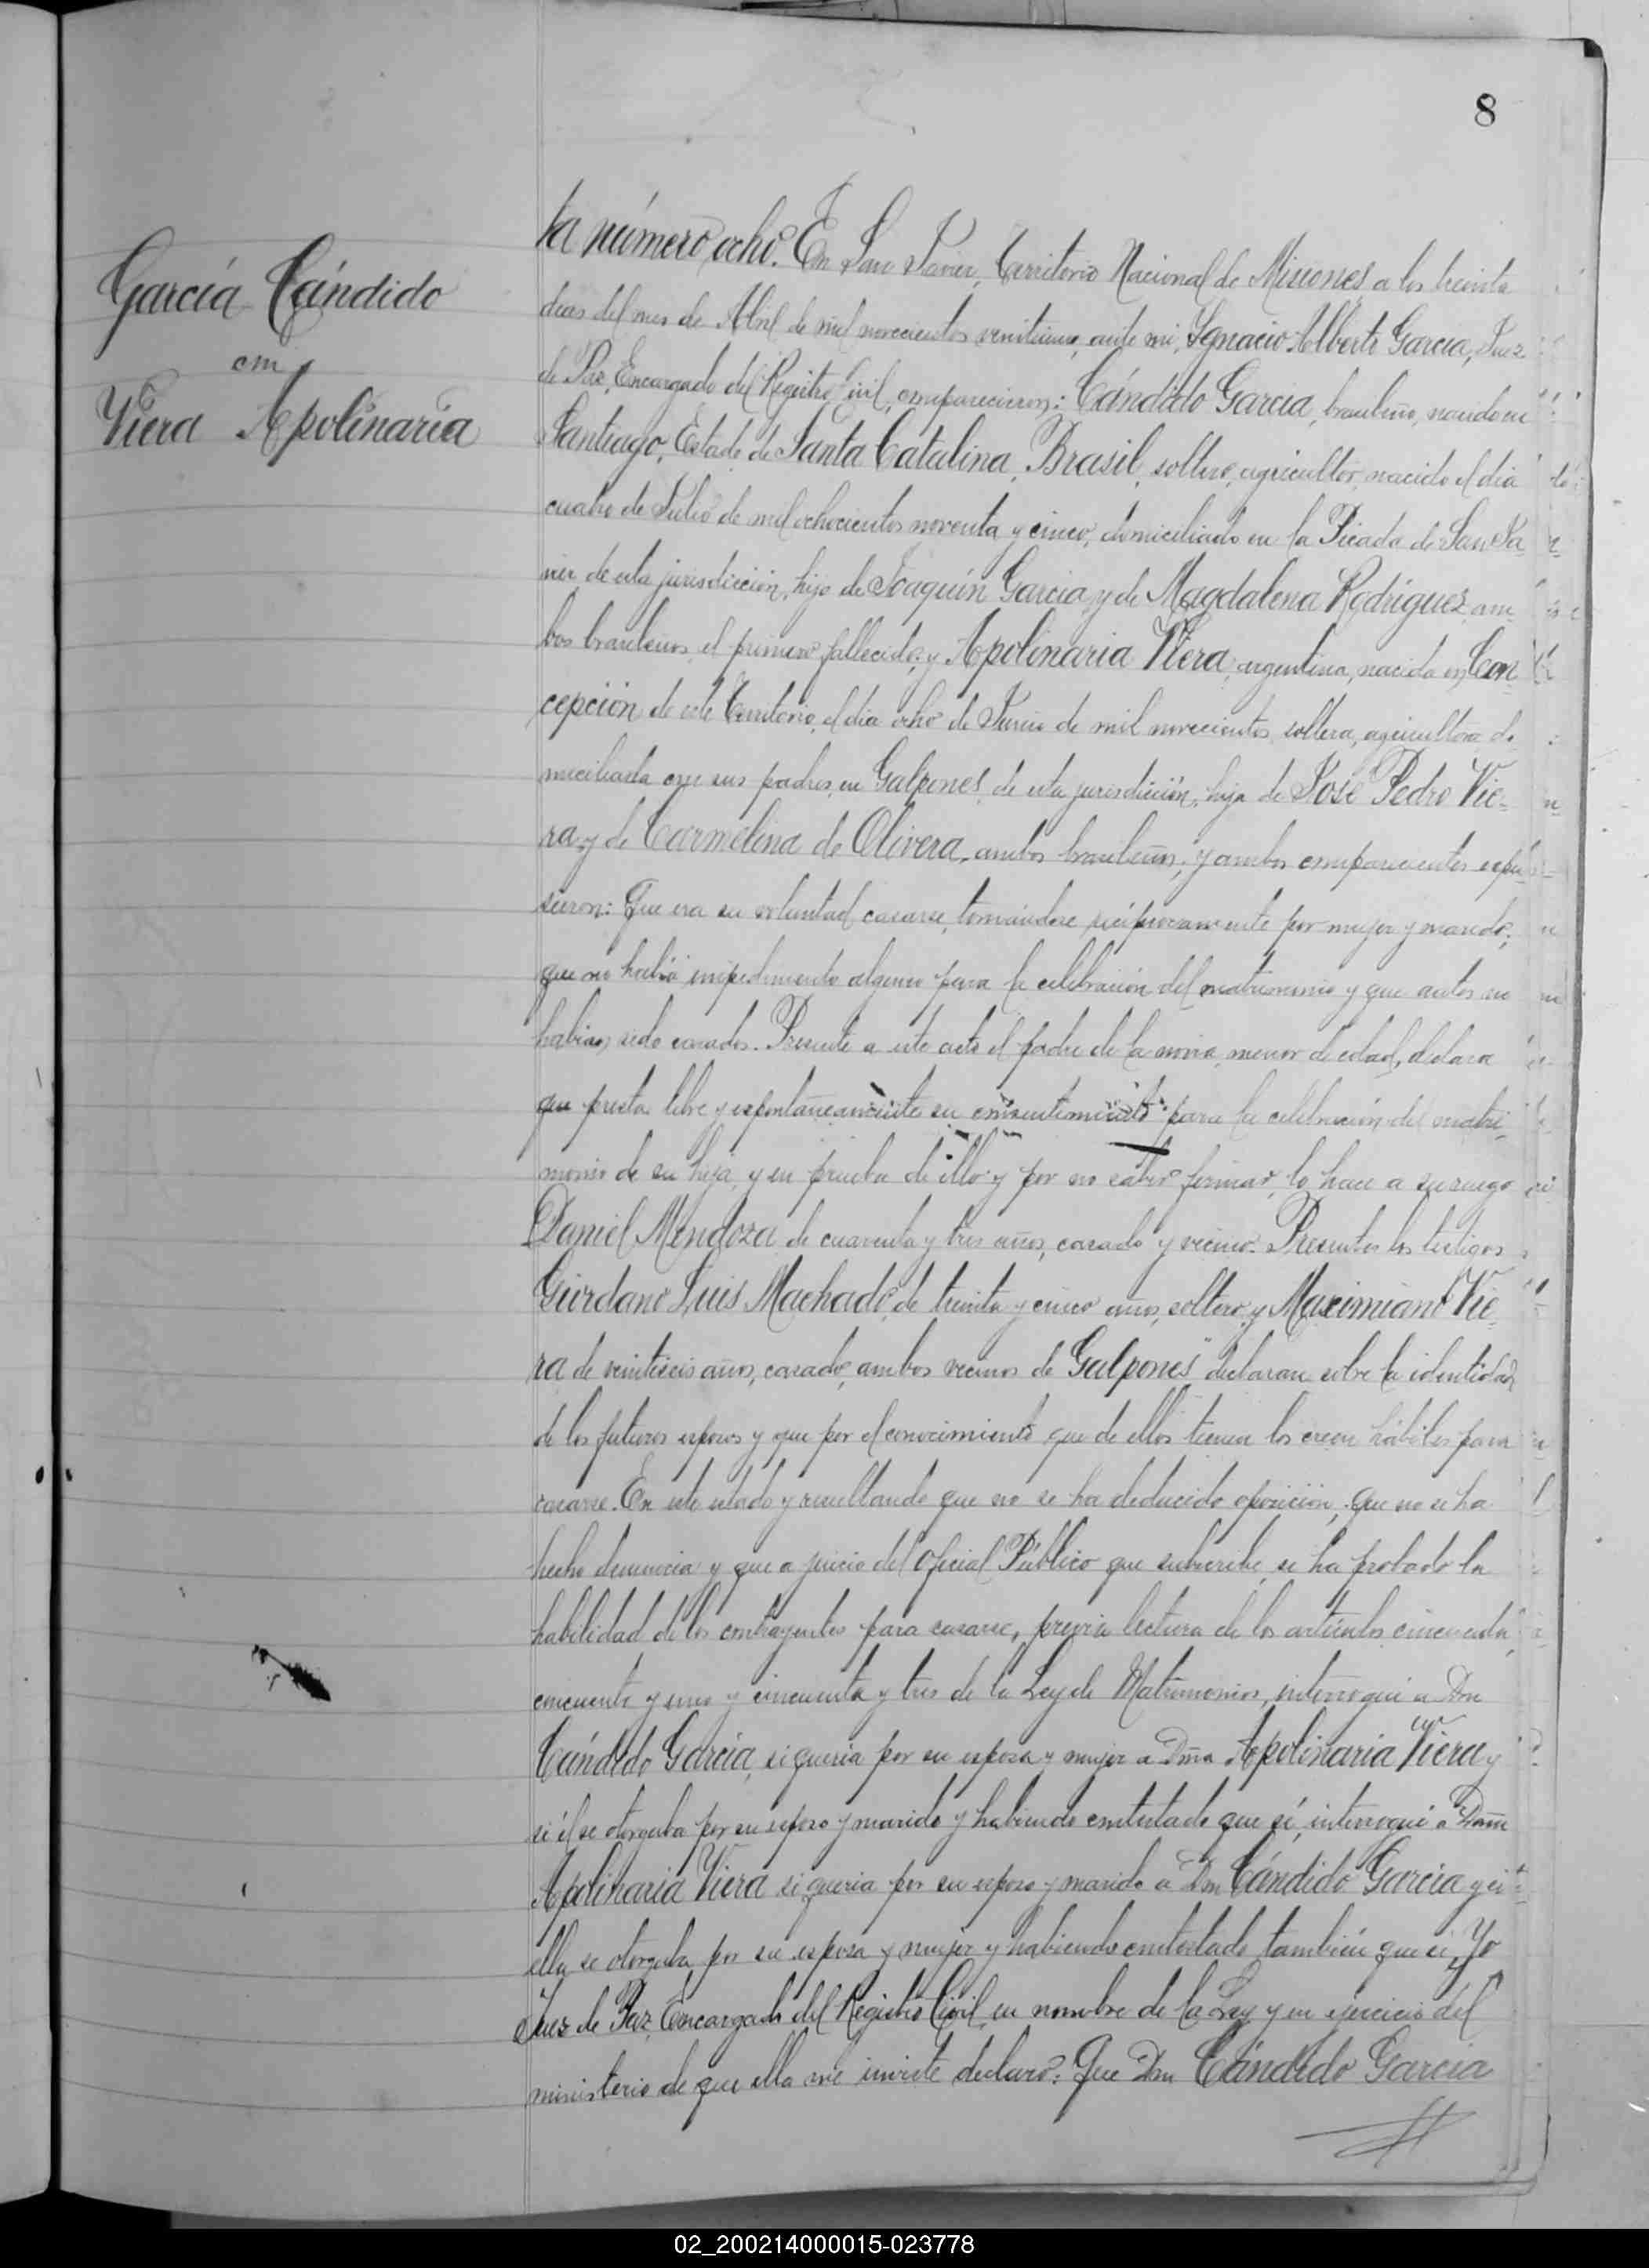 8
García Cándido
con
Viera Apolinaria
ta número ocho. En San Javier, Territorio Nacional de Misiones a los treinta
dias del mes de Abril de mil novecientos veintiuno, ante mi, Ignacio Alberto Garcia, Juez
de Paz, Encargado del Registro Civil, comparecieron: Cándido Garcia, brasileño, nacido en
Santiago, Estado de Santa Catalina, Brasil, soltero, agricultor, nacido el dia
cuatro de Julio de mil ochocientos noventa y cinco, domiciliado en la Picada de San Ja
vier de esta jurisdicción, hijo de Joaquín Garcia y de Magdalena Rodriguez, am-
bos brasileños, el primero fallecido; y Apolinaria Viera, argentina, nacida en Con
cepción de este Territorio, el dia ocho de Junio de mil novecientos, soltera, agricultora, do-
miciliada con sus padres en Galpones, de esta jurisdicción, hija de José Pedro Vie-
ra y de Carmelina de Olivera, ambos brasileños; y ambos comparecientes expu-
sieron: Que era su voluntad casarse, tomándose recíprocamente por mujer y marido;
que no había impedimento alguno para la celebración del matrimonio y que antes no
habian sido casados. Presente a este acto el padre de la novia, menor de edad, declara
que presta libre y espontáneamente su consentimiento para la celebración del matri-
monio de su hija, y en prueba de ello y por no saber firmar, lo hace a su ruego
Daniel Mendoza, de cuarenta y tres años, casado y vecino. Presentes los testigos
Giordano Luis Machado, de treinta y cinco años, soltero, y Maximiano Vie-
ra de veintiseis años, casado, ambos vecinos de Galpones declaran sobre la identidad
de los futuros esposos y que por el conocimiento que de ellos tienen los creen hábiles para
casarse. En este estado y resultando que no se ha deducido oposición, que no se ha
hecho denuncia y que a juicio del Oficial Público que subscribe, se ha probado la
habilidad de los contrayentes para casarse, previa lectura de los artículos cincuenta,
cincuenta y uno y cincuenta y tres de la Ley de Matrimonios, interrogué a Don
Cándido Garcia, si queria por su esposa y mujer a Dña Apolinaria Viera y
si él se otorgaba por su esposo y marido y habiendo contestado que sí, interrogué a Doña
Apolinaria Viera si queria por su esposo y marido a Don Cándido Garcia y si
ella se otorgaba por su esposa y mujer y habiendo contestado también que si, Yo
Juez de Paz, Encargado del Registro Civil, en nombre de la Ley y en ejercicio del
ministerio de que ella me inviste declaro: Que Don Cándido Garcia
02_200214000015-023778